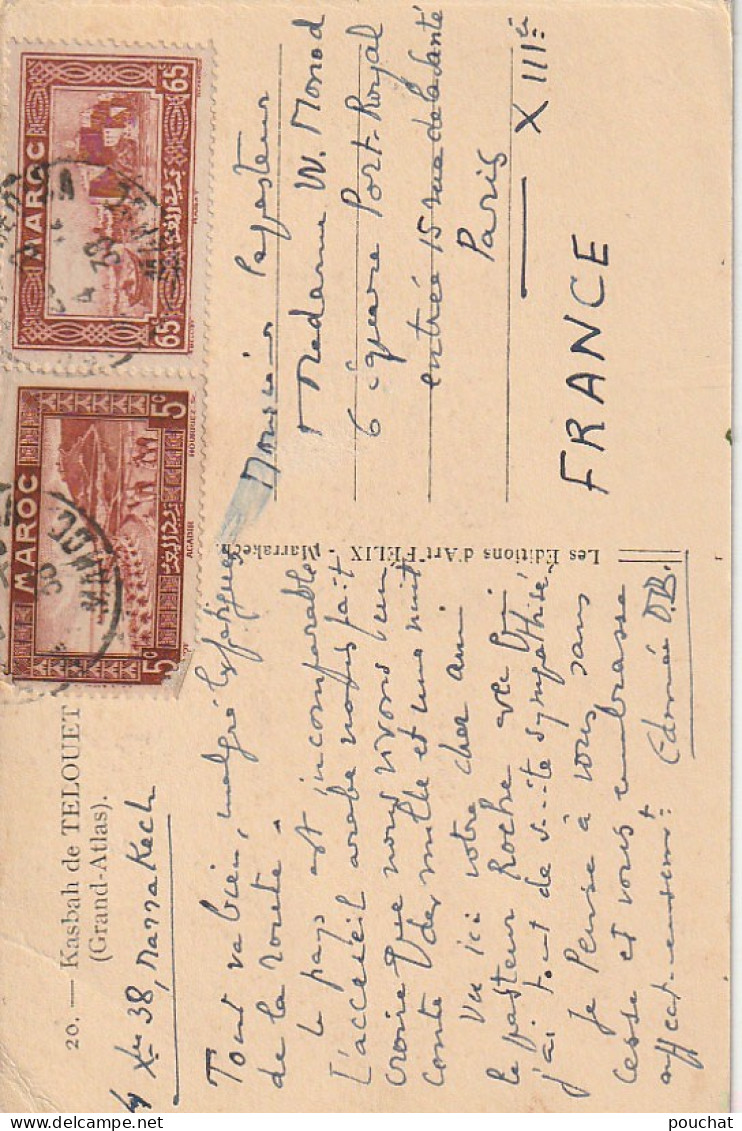 20. — Kasbah de TELOUET
(Grand-Atlas).
Xbre 38, Marrakech
Tout va bien, malgré les fatigues
de la route.
le pays est incomparable
L'accueil arabe nous fait
croire que nous vivons un
conte des mille et une nuit
Vu ici votre cher ami
le pasteur Roche avec qui
j'ai tout de suite sympathisé.
Je pense à vous sans
cesse et vous embrasse
affect-ensemt: Edmée D.B.
Les Éditions d'Art FÉLIX - Marrakech.
MAROC
65c
65
MAROC
5c
5c
AGADIR
البريد المغربية
MAROC
Monsieur le pasteur
& Madame W. Monod
6 square Port-Royal
entrée 15 rue de la Santé
Paris
XIIIe
FRANCE
pouchat